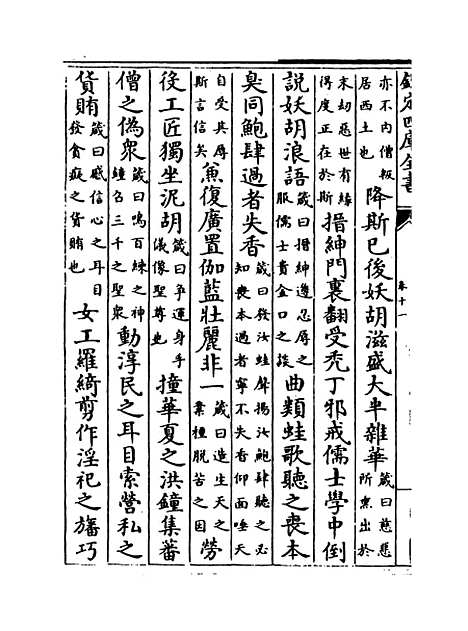 欽定四庫全書
卷十一
亦不内僧叛居西土也降斯已後妖胡滋盛大半雜華箴曰慈悲所熏出於
末劫惡世有緣得度正在於斯搢紳門裏翻受禿丁邪戒儒士學中倒
說妖胡浪語箴曰搢紳邊忍辱之服儒士貴金口之談曲類蛙歌聽之喪本
臭同鮑肆過者失香箴曰發汝蛙聲揚汝鮑肆聽之必知喪本過者寧不失香仰面唾天
自受其辱斯言信矣兼復廣置伽藍壯麗非一箴曰造生天之業種脱苦之因勞
役工匠獨坐泥胡箴曰爭運身手儀像聖尊也撞華夏之洪鐘集蕃
僧之偽衆箴曰鳴百鍊之神鐘召三千之聖衆動淳民之耳目索營私之
貨賄箴曰感信心之耳目發貪癡之貨賄也女工羅綺剪作淫祀之旛巧